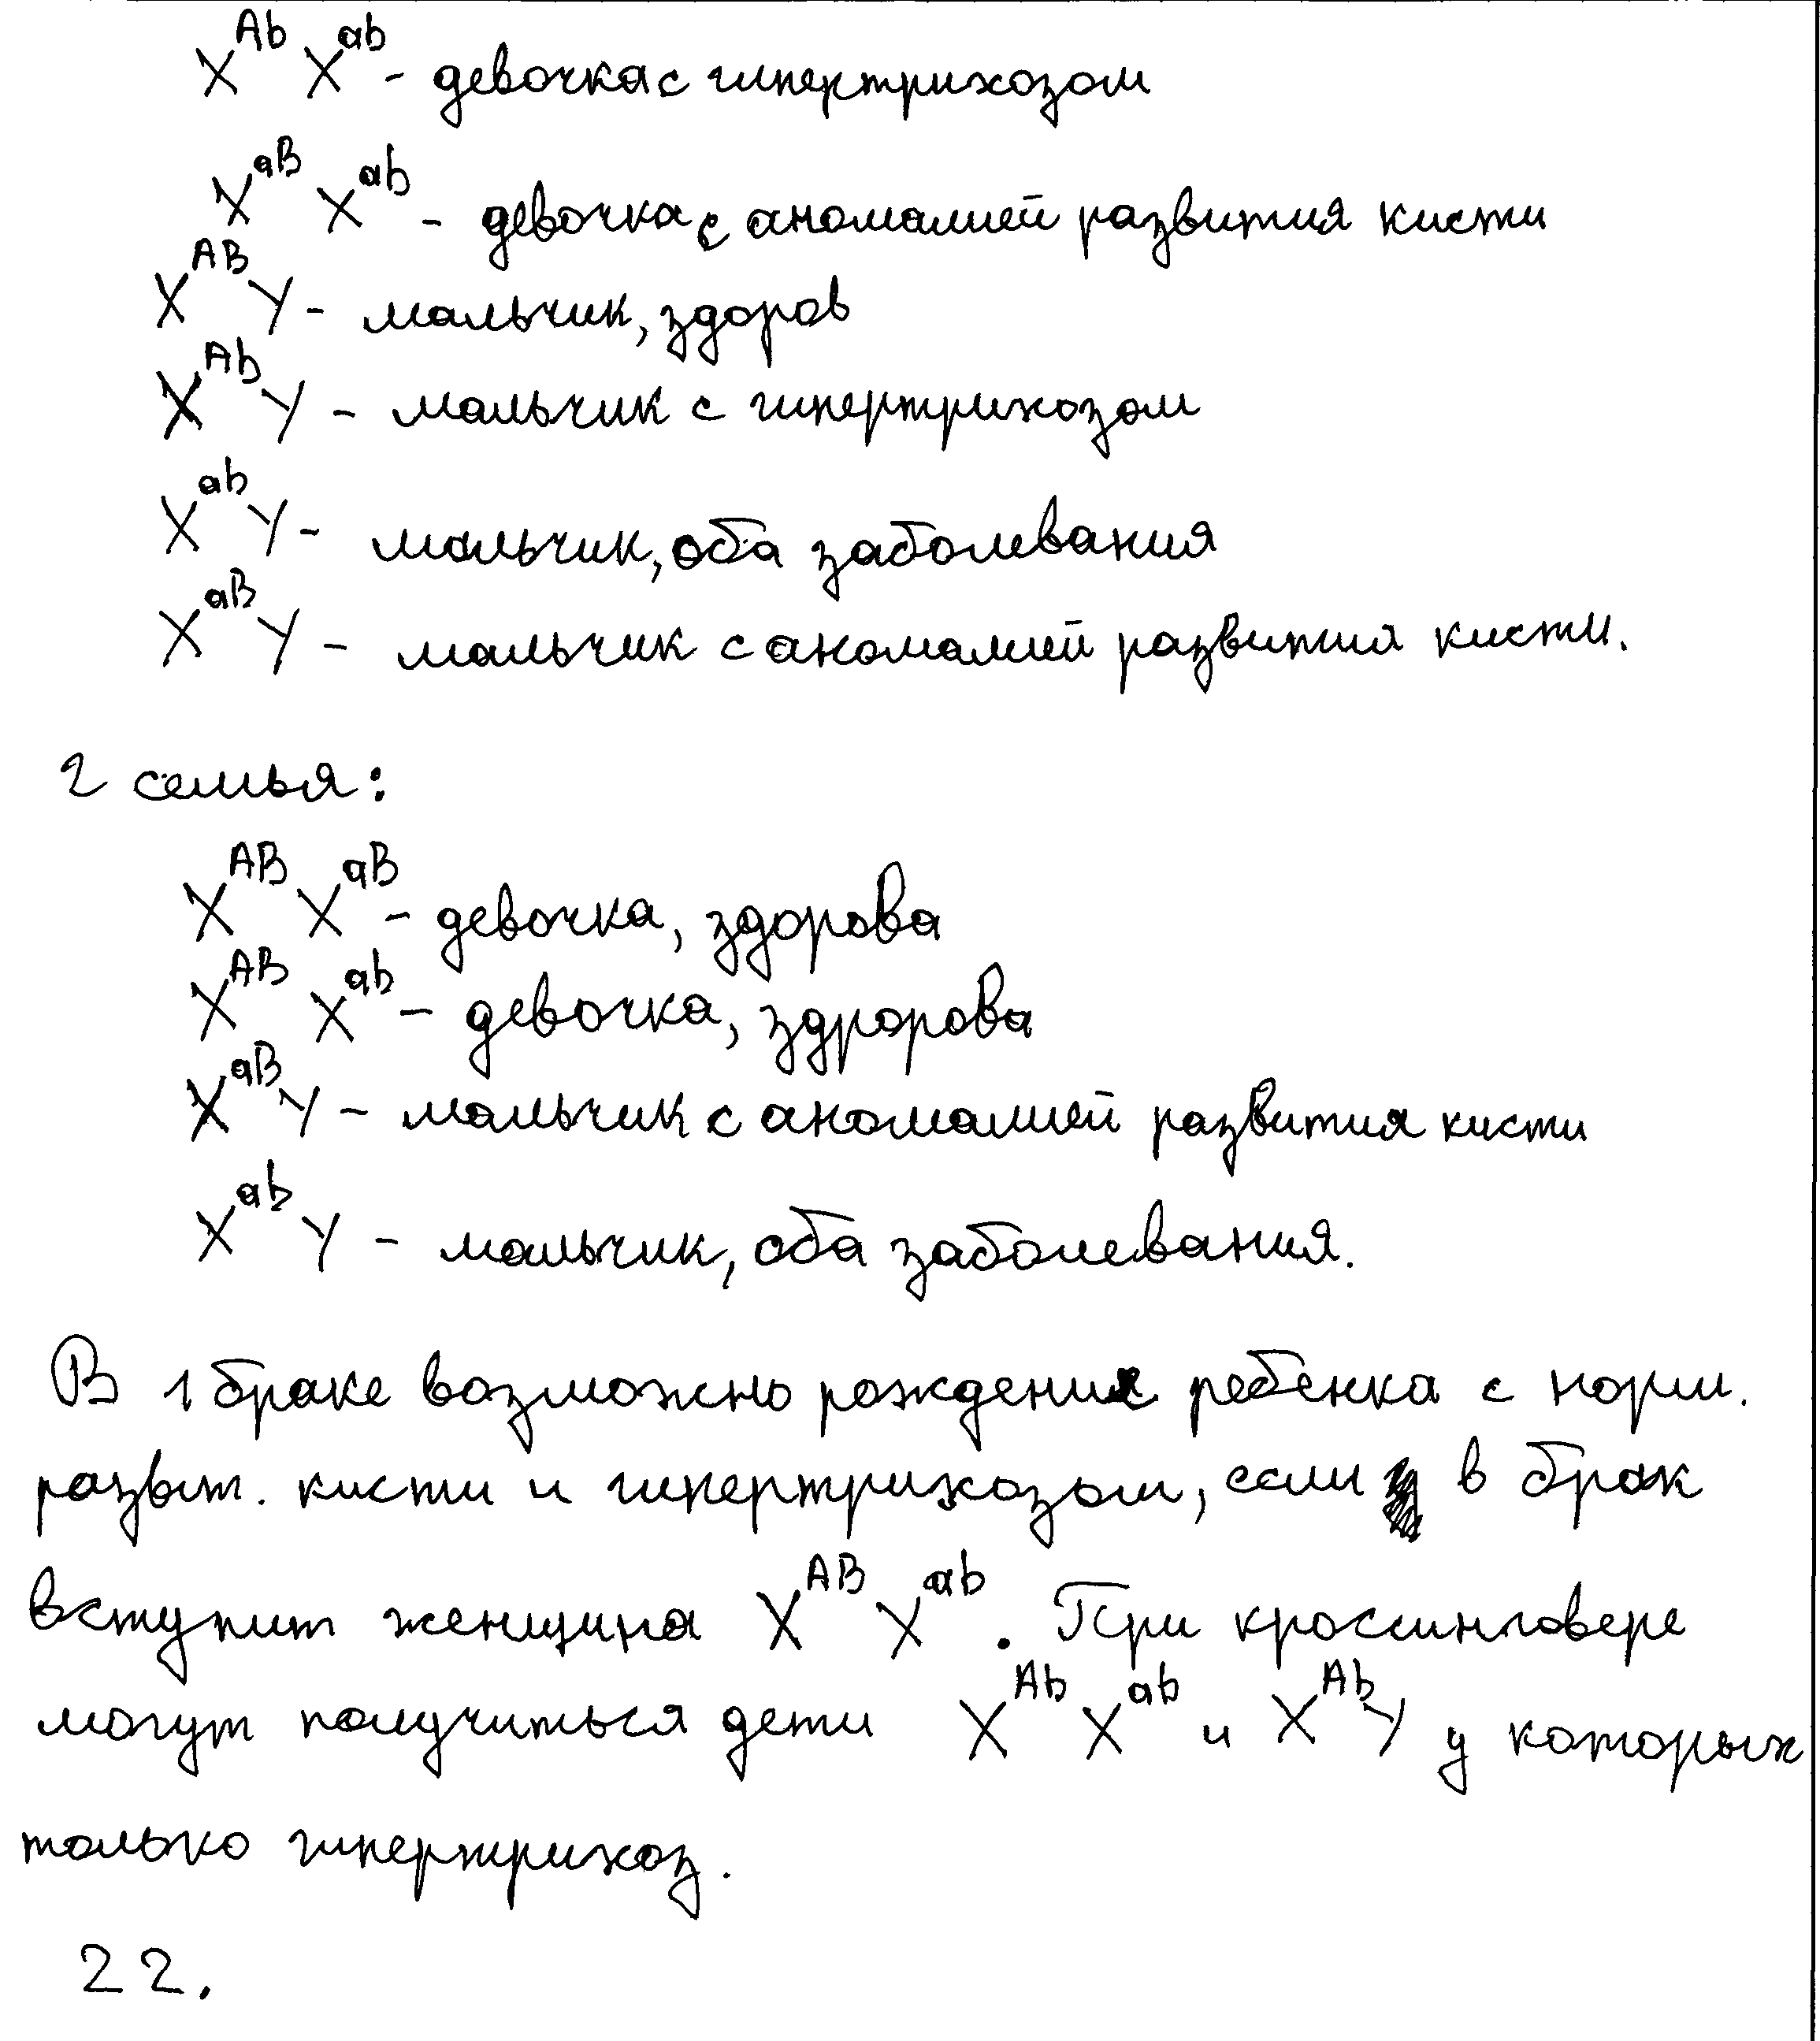 X^Ab X^ab - девочка с гипертрихозом
X^aB X^ab - девочка с аномалией развития кисти
X^AB Y - мальчик, здоров
X^Ab Y - мальчик с гипертрихозом
X^ab Y - мальчик, оба заболевания
X^aB Y - мальчик с аномалией развития кисти.
2 семья:
X^AB X^aB - девочка, здорова
X^AB X^ab - девочка, здророва
X^aB Y - мальчик с аномалией развития кисти
X^ab Y - мальчик, оба заболевания.
В 1 браке возможно рождение ребенка с норм.
развит. кисти и гипертрихозом, если в брак
вступит женщина X^AB X^ab. При кроссинговере
могут получиться дети X^Ab X^ab и X^Ab Y у которых
только гипертрихоз.
22.